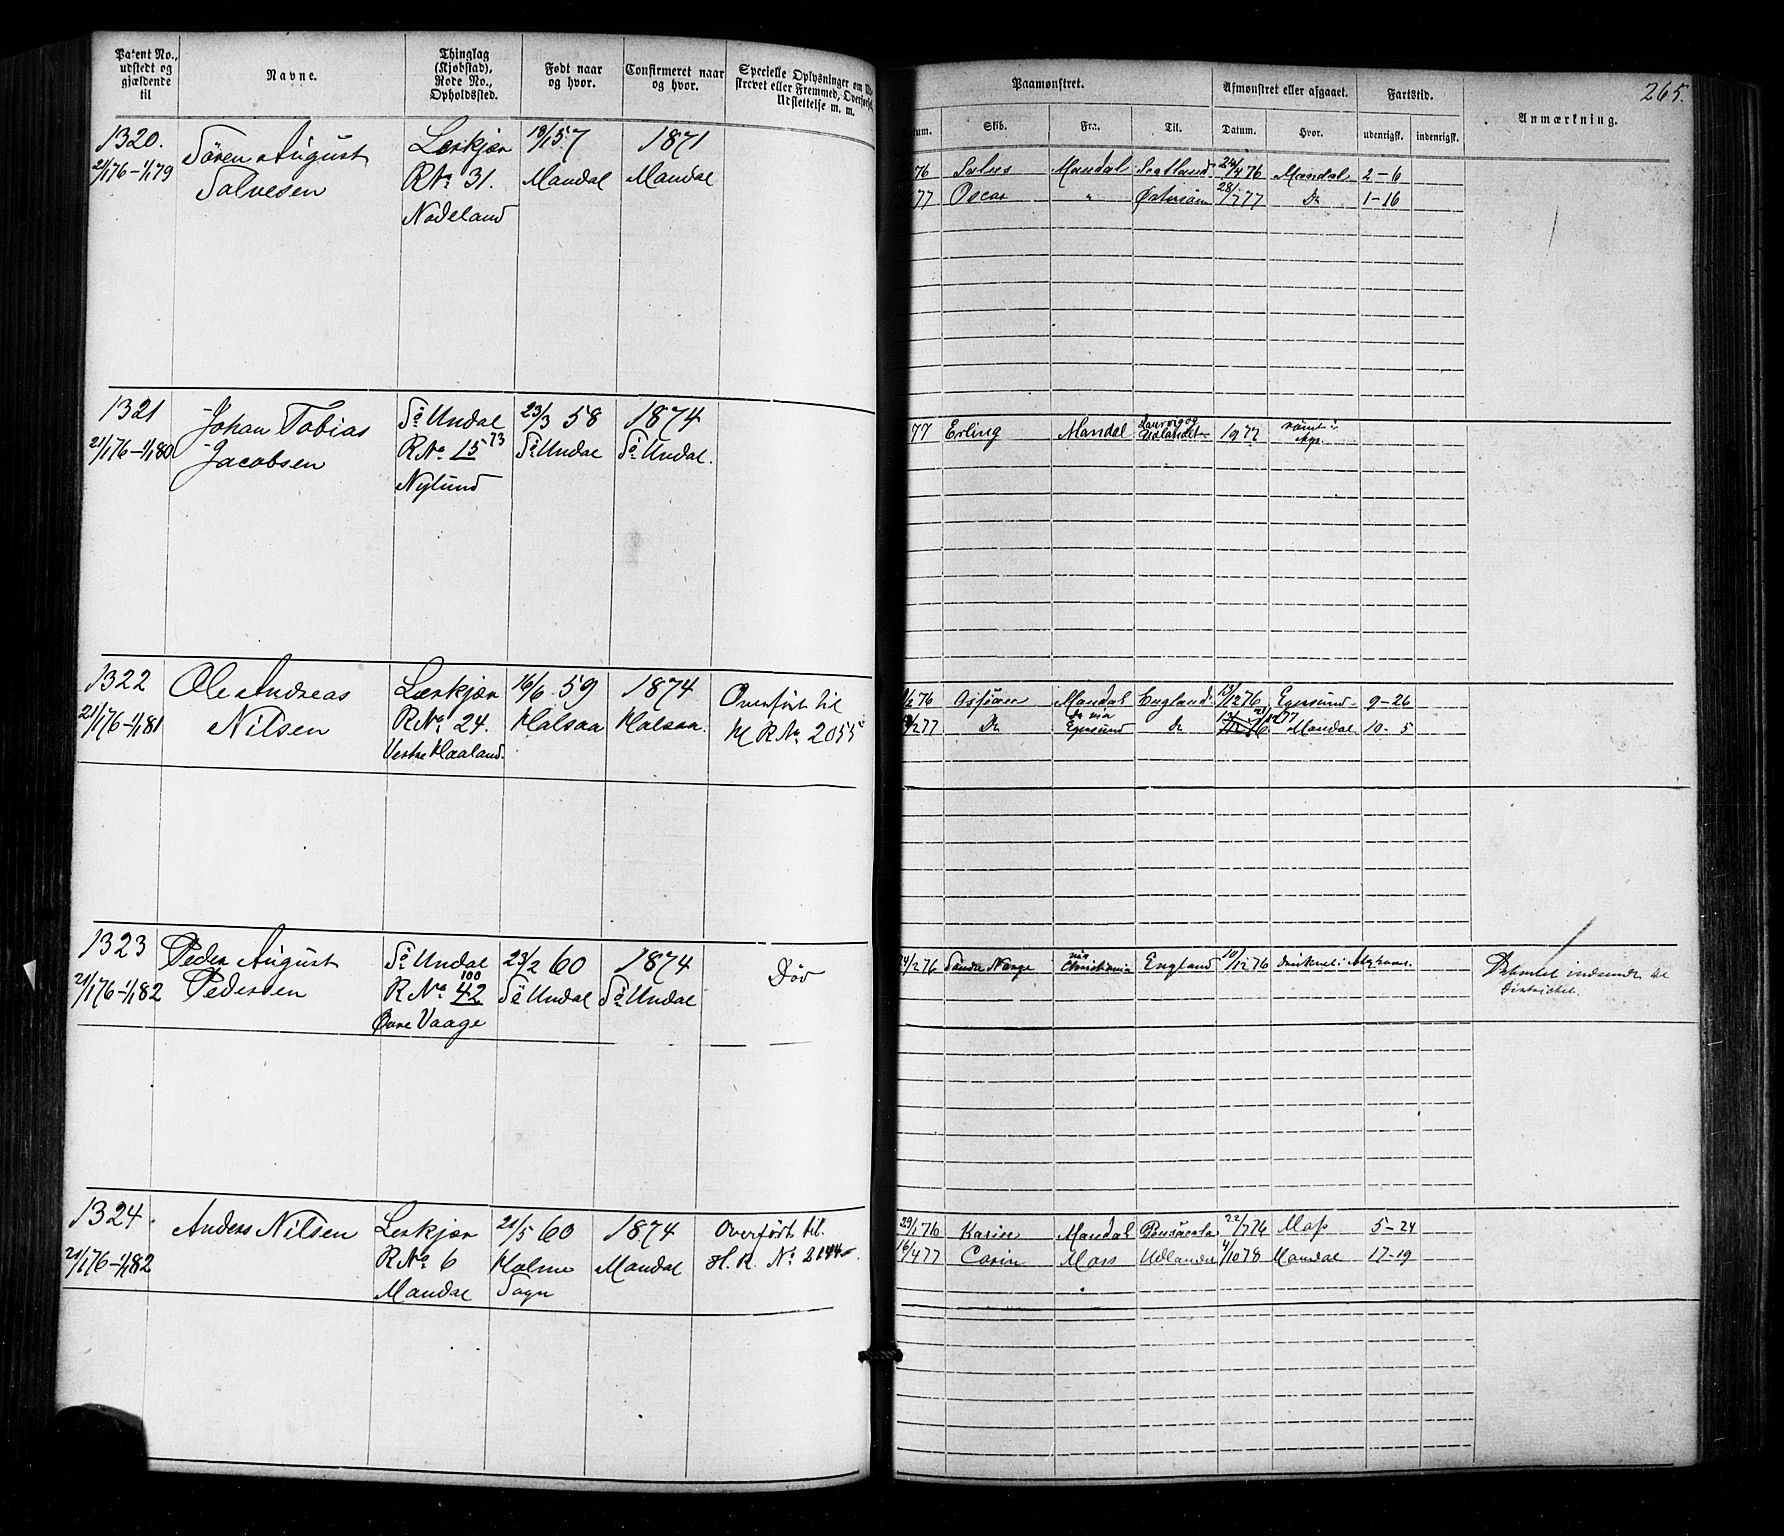 Patent No., udstedt og gjældende til
Navne.
Thinglag (Kjøbstad), Rode No., Opholdssted.
Født naar og hvor.
Confirmeret naar og hvor.
Specielle Oplysninger om
strevet eller Fremmed, Overførsel
Udslettelse m. m.
Paamønstret.
Afmønstret eller afgaaet.
Fartstid.
Anmærkning.
265.
Skib.
Fra.
Til.
Datum.
Hvor.
udenrigsk.
indenrigsk.
1320.
21/1 76 – 1/1 79
Sören August
Salvesen
Leskjær
R No 31.
Nodeland
18/1 57
Mandal
1871
Mandal
76 Salus Mandal Scotland 24/4 76 Mandal 2 – 6
77 Oscar " Østersöen 28/7 77 Do 1 – 16
1321
21/1 76 – 1/1 80
Johan Tobias
Jacobsen
So Undal
R No 15 73
Nylund
23/3 58
So Undal
1874
So Undal.
77 Erling Mandal Laurvig og Udlandet 1977
1322
21/1 76 – 1/1 81
Ole Andreas
Nilsen
Leskjær
R No 24.
Vestre Haaland.
16/6 59
Halsaa
1874
Halsaa.
Overført til
H R No 2055
76 Mandal England 12/12 76 Egersund 9 – 26
/2 77 Do do via Egersund Do 77 Mandal 10 – 5
1323
21/1 76 – 1/1 82
Peder August
Pedersen
So Undal
R No 42 100
Øvre Vaage
23/2 60
So Undal
1874
So Undal
Död
/2 76 via Christiania England 10/12 76 druknet i
indsendt til
Distriktet.
1324.
21/1 76 – 1/1 82
Anders Nilsen
Leskjær
R No 6
Mandal
21/5 60
Holme
Sogn
1874
Mandal
Overført til.
H. R. No 2144
29/1 76 Karise Mandal 22/7 76 Moss 5 – 24
16/4 77 Carin Moss Udlandet 4/10 78 Mandal 17 – 19